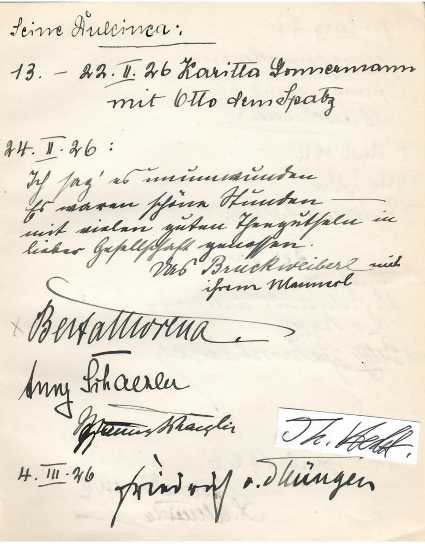 Seine Dulcinea:
13. – 22. II. 26 Karitta Gonnermann
mit Otto dem Spatz
24. II. 26:
Ich sag' es unumwunden
Es waren schöne Stunden
mit vielen guten Theegutseln in
lieber Gesellschaft genossen.
Das Bruckweiberl mit
ihrem Mannerl
Berta Morena.
Anny Schaezler
4. III. 26
Friedrich v. Thüngen
Th.